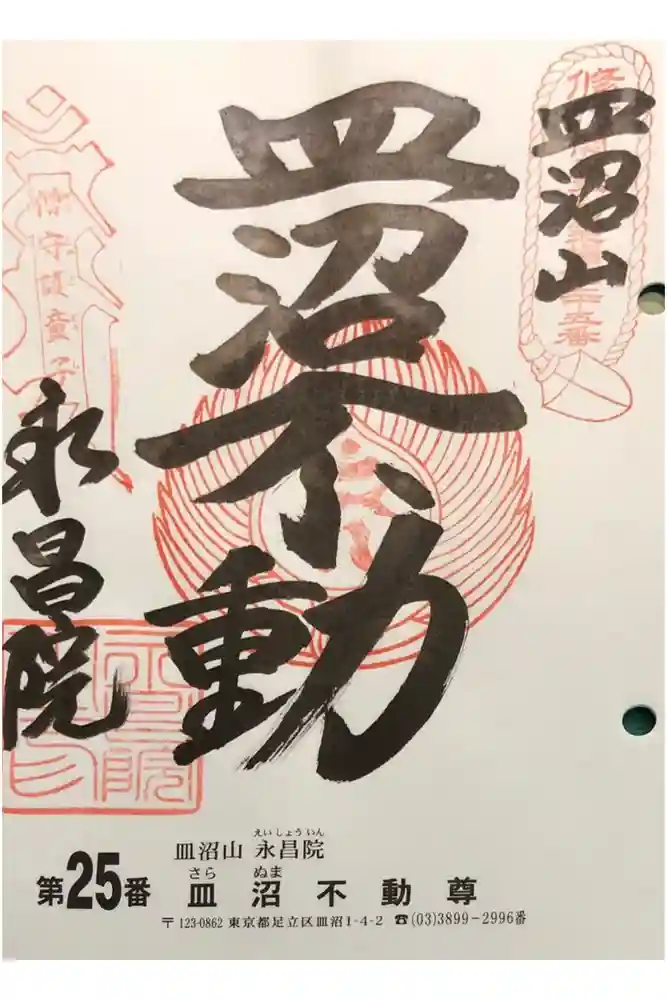 皿沼山
皿沼不動
永昌院
守護童子
二十五番
皿沼山 永昌院
えいしょういん
第25番 皿沼不動尊
さら ぬま
〒123-0862 東京都足立区皿沼1-4-2 ☎(03)3899-2996番